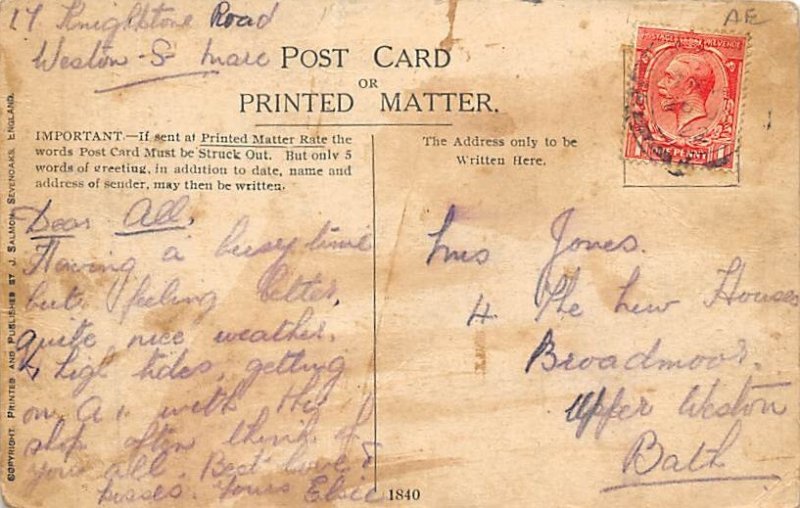 17 Knightstone Road
Weston-S-Mare
AE
POST CARD
OR
PRINTED MATTER.
POSTAGE REVENUE
ONE PENNY
IMPORTANT.—If sent at Printed Matter Rate the
words Post Card Must be Struck Out. But only 5
words of greeting, in addition to date, name and
address of sender, may then be written.
The Address only to be
Written Here.
Dear All,
Having a busy time
but feeling better,
quite nice weather.
& high tides, getting
on A1 with the
ship often think of
you all. Best love &
kisses. Yours Elsie
Mrs Jones.
4 The New Houses
Broadmoor.
Upper Weston
Bath
COPYRIGHT. PRINTED AND PUBLISHED BY J. SALMON, SEVENOAKS, ENGLAND.
1840